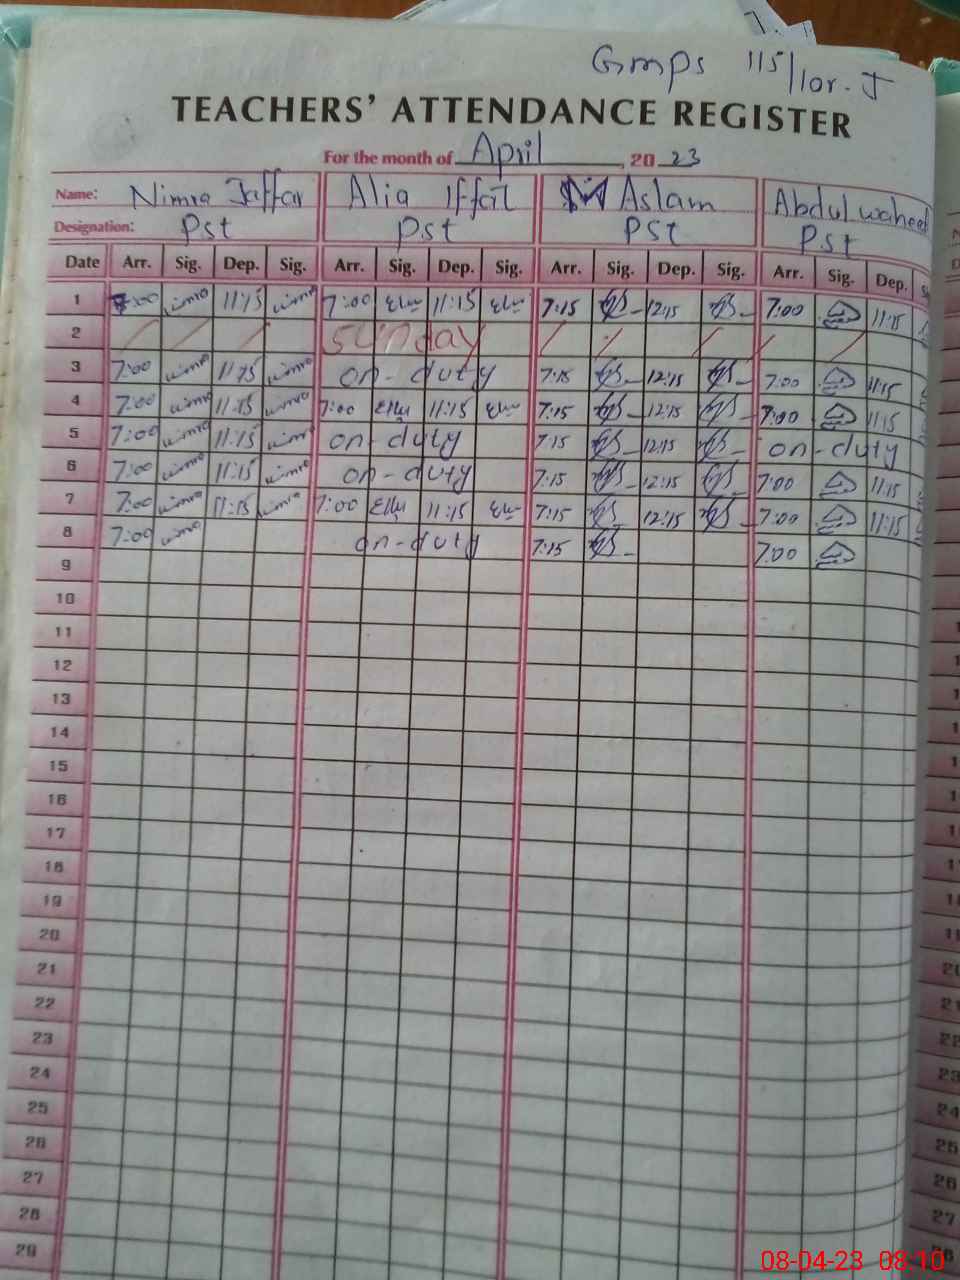 Gmps 115/10r.J
TEACHERS' ATTENDANCE REGISTER
For the month of April, 20 23
Name: Nimra Jaffar Alia Iffat M Aslam Abdul waheed
Designation: Pst Pst PST Pst
Date Arr. Sig. Dep. Sig. Arr. Sig. Dep. Sig. Arr. Sig. Dep. Sig. Arr. Sig. Dep.
1 7:00 nimra 11:15 nimra 7:00 11:15 7:15 12:15 7:00 11:15
2 SUNDAY
3 7:00 nimra 11:15 nimra on-duty 7:15 12:15 7:00 11:15
4 7:00 nimra 11:15 nimra 7:00 11:15 7:15 12:15 7:00 11:15
5 7:00 nimra 11:15 nimra on-duty 7:15 12:15 on-duty
6 7:00 nimra 11:15 nimra on-duty 7:15 12:15 7:00 11:15
7 7:00 nimra 11:15 nimra 7:00 11:15 7:15 12:15 7:00 11:15
8 7:00 nimra on-duty 7:15 7:00
9
10
11
12
13
14
15
16
17
18
19
20
21
22
23
24
25
26
27
28
29
08-04-23 08:10